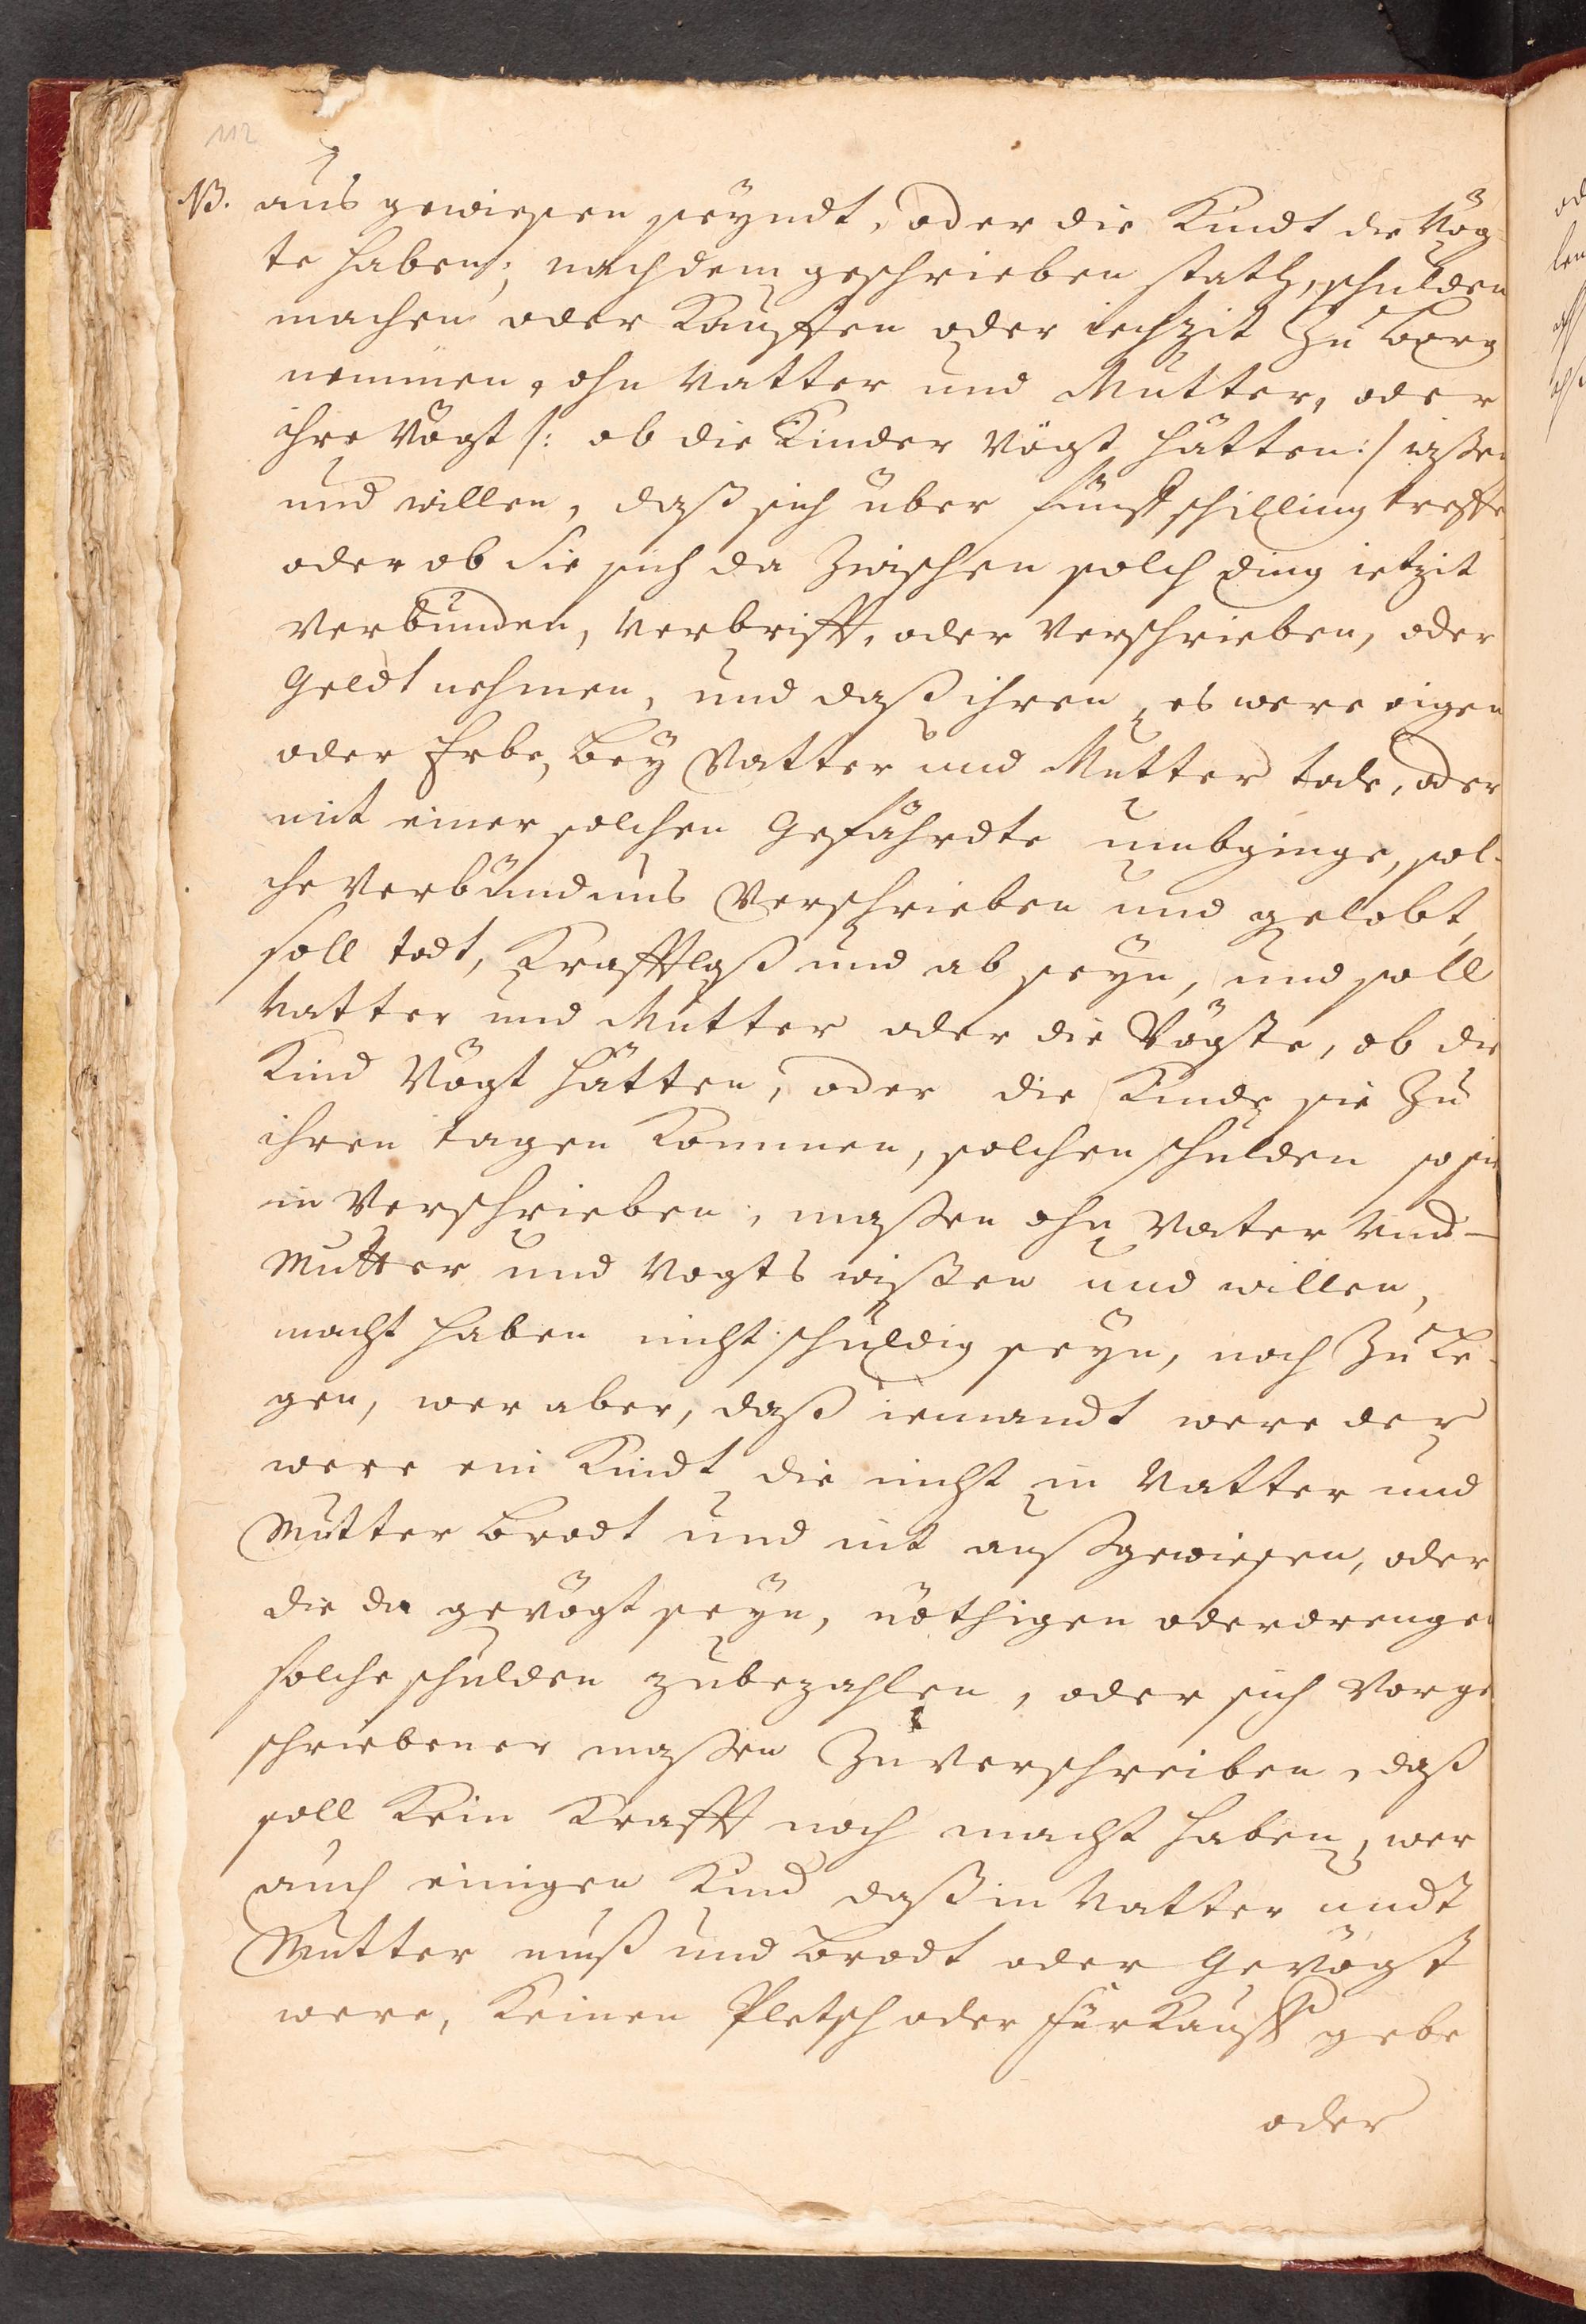 112
NB. aus gewiesen seyndt, oder die Kindt die Vög-
te haben; nachdem geschrieben stath, schulden
machen oder Kauffen oder ichzit Zu borg
nemmen, ohn Vatter und Mutter, oder
ihre Vögt /: ob die Kinder Vögt hätten :/ wißen
und willen, daß sich über fünff schilling treffe
oder ob Sie sich da Zwischen solch ding ietzit
verbunden, verbrifft, oder verschrieben, oder
Geldt nehmen, und daß ihren, es were eigen
oder Erbe, bey Vatter und Mutter tode, oder
mit einer solchen Gefährdte umbginge, sol-
che verbündnus Verschrieben und gelobt,
soll todt, Krafftloß und ab seyn, und soll
Vatter und Mutter oder die Vögte, ob die
Kind Vögt hätten, oder die Kinde sie Zu
ihren tagen Kommen, solchen schulden so sie
in Verschrieben, maßen ohn Vater und
Mutter und Vogts wißen und willen,
macht haben nicht schuldig seyn, noch Zu
gen, wer aber, daß iemandt were der
were ein Kindt die nicht in Vatter und
Mutter brodt und nit außgewiesen, oder
die da gevögt seyn, nöthigen oder drengen
solche schulden zubezahlen, oder sich vorge
schriebener maßen Zuverschreiben, daß
soll Kein Krafft noch macht haben, wer
auch einigen Kind daß in Vatter undt
Mutter muß und brodt oder Gevögt
were, Keinen Pletsch oder fürKauff gebe
oder